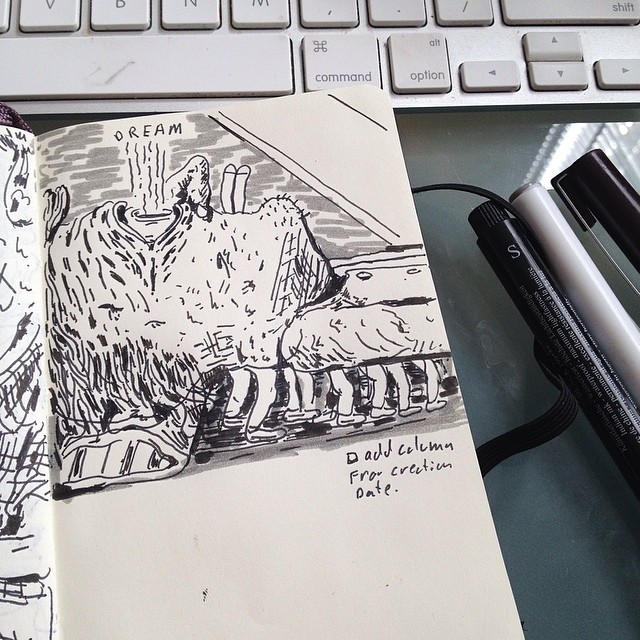 V
B
N
M
,
.
/
shift
⌘
command
alt
option
DREAM
S
add column
For creation
Date.